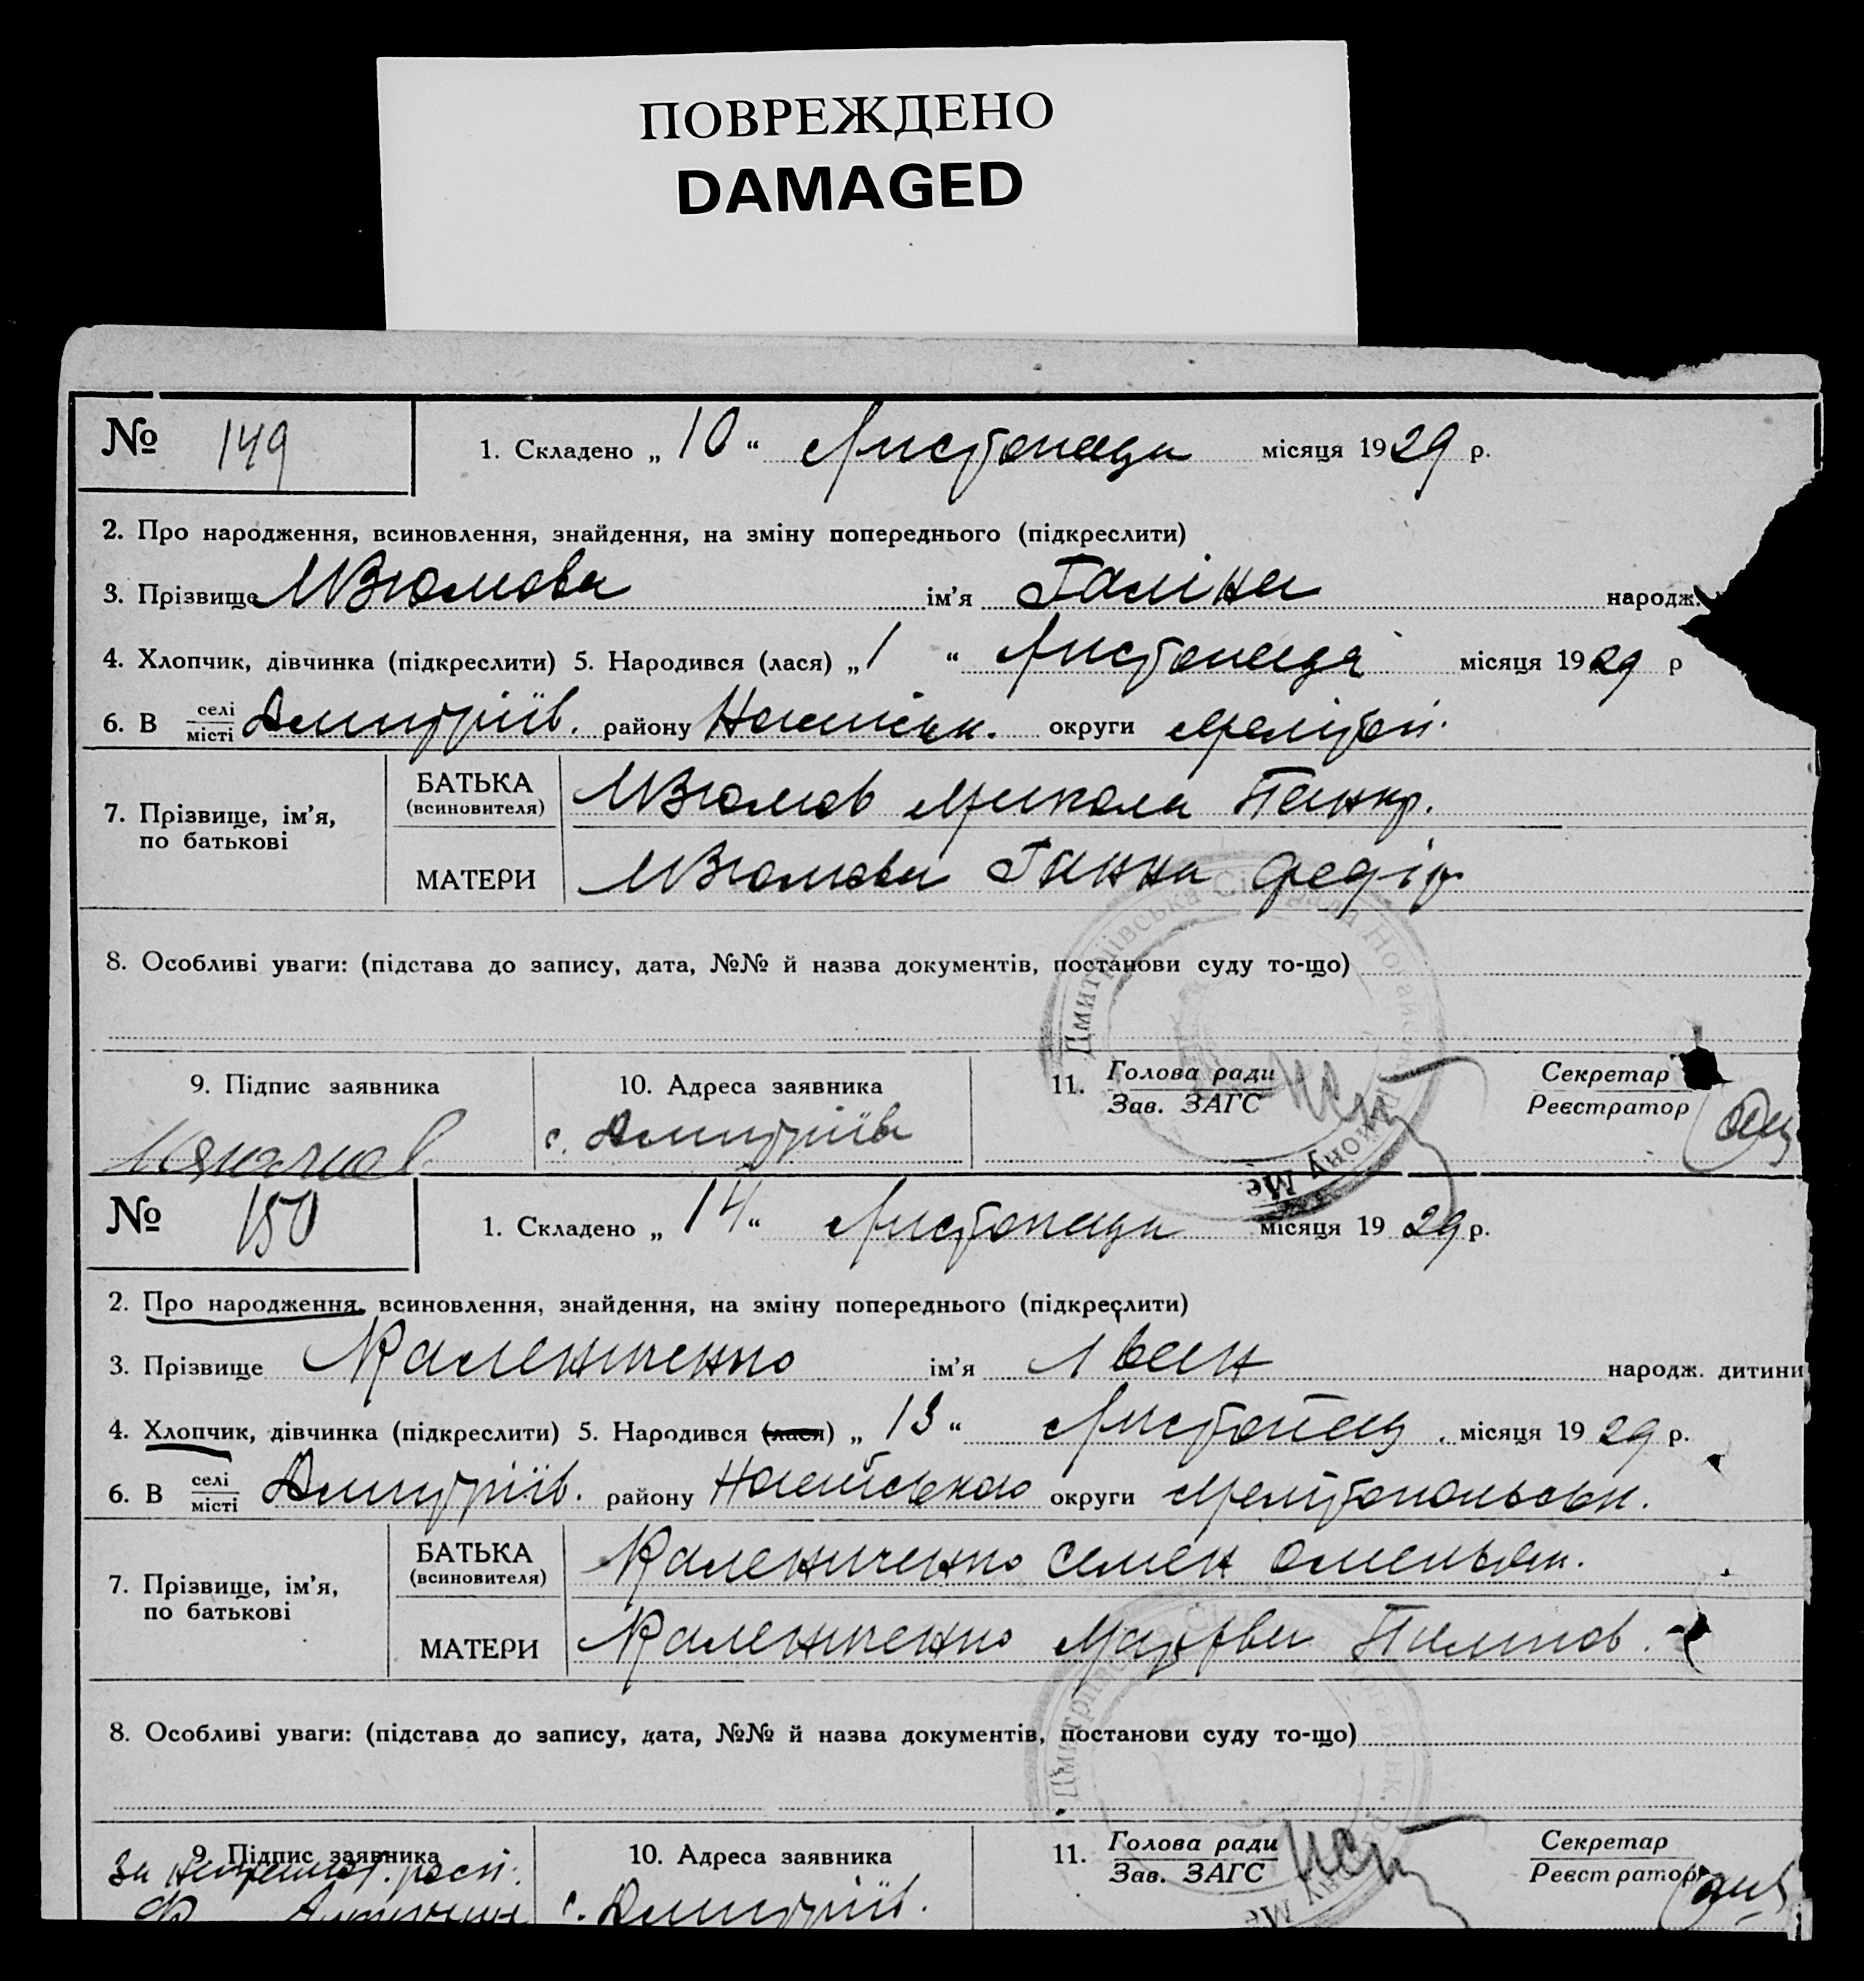 ПОВРЕЖДЕНО
DAMAGED
№ 149 1. Складено „ 10 “ Листопада місяця 1929 р.
2. Про народження, всиновлення, знайдення, на зміну попереднього (підкреслити)
3. Прізвище Ізюмова ім’я Галіна народж.
4. Хлопчик, дівчинка (підкреслити) 5. Народився (лася) „ 1 “ Листопада місяця 1929 р
6. В селі місті Дмитріїв. району округи Мелітоп.
7. Прізвище, ім’я, по батькові
БАТЬКА (всиновителя) Ізюмов Микола Панкр.
МАТЕРИ Ізюмова Ганна Федір
8. Особливі уваги: (підстава до запису, дата, №№ й назва документів, постанови суду то-що)
Дмитріївська Сільрада
Району Ме
9. Підпис заявника 10. Адреса заявника 11. Голова ради Зав. ЗАГС Секретар Реєстратор
с. Дмитріїв
№ 150 1. Складено „ 14 “ Листопада місяця 1929 р.
2. Про народження, всиновлення, знайдення, на зміну попереднього (підкреслити)
3. Прізвище Калениченко ім’я Іван народж. дитини
4. Хлопчик, дівчинка (підкреслити) 5. Народився (лася) „ 13 “ Листопад. місяця 1929 р.
6. В селі місті Дмитріїв. району Ногайського округи Мелітопольськ.
7. Прізвище, ім’я, по батькові
БАТЬКА (всиновителя) Калениченко Семен Омельян.
МАТЕРИ Калениченко Марфа Пилипов.
8. Особливі уваги: (підстава до запису, дата, №№ й назва документів, постанови суду то-що)
9. Підпис заявника 10. Адреса заявника 11. Голова ради Зав. ЗАГС Секретар Реєстратор
За
с. Дмитріїв.